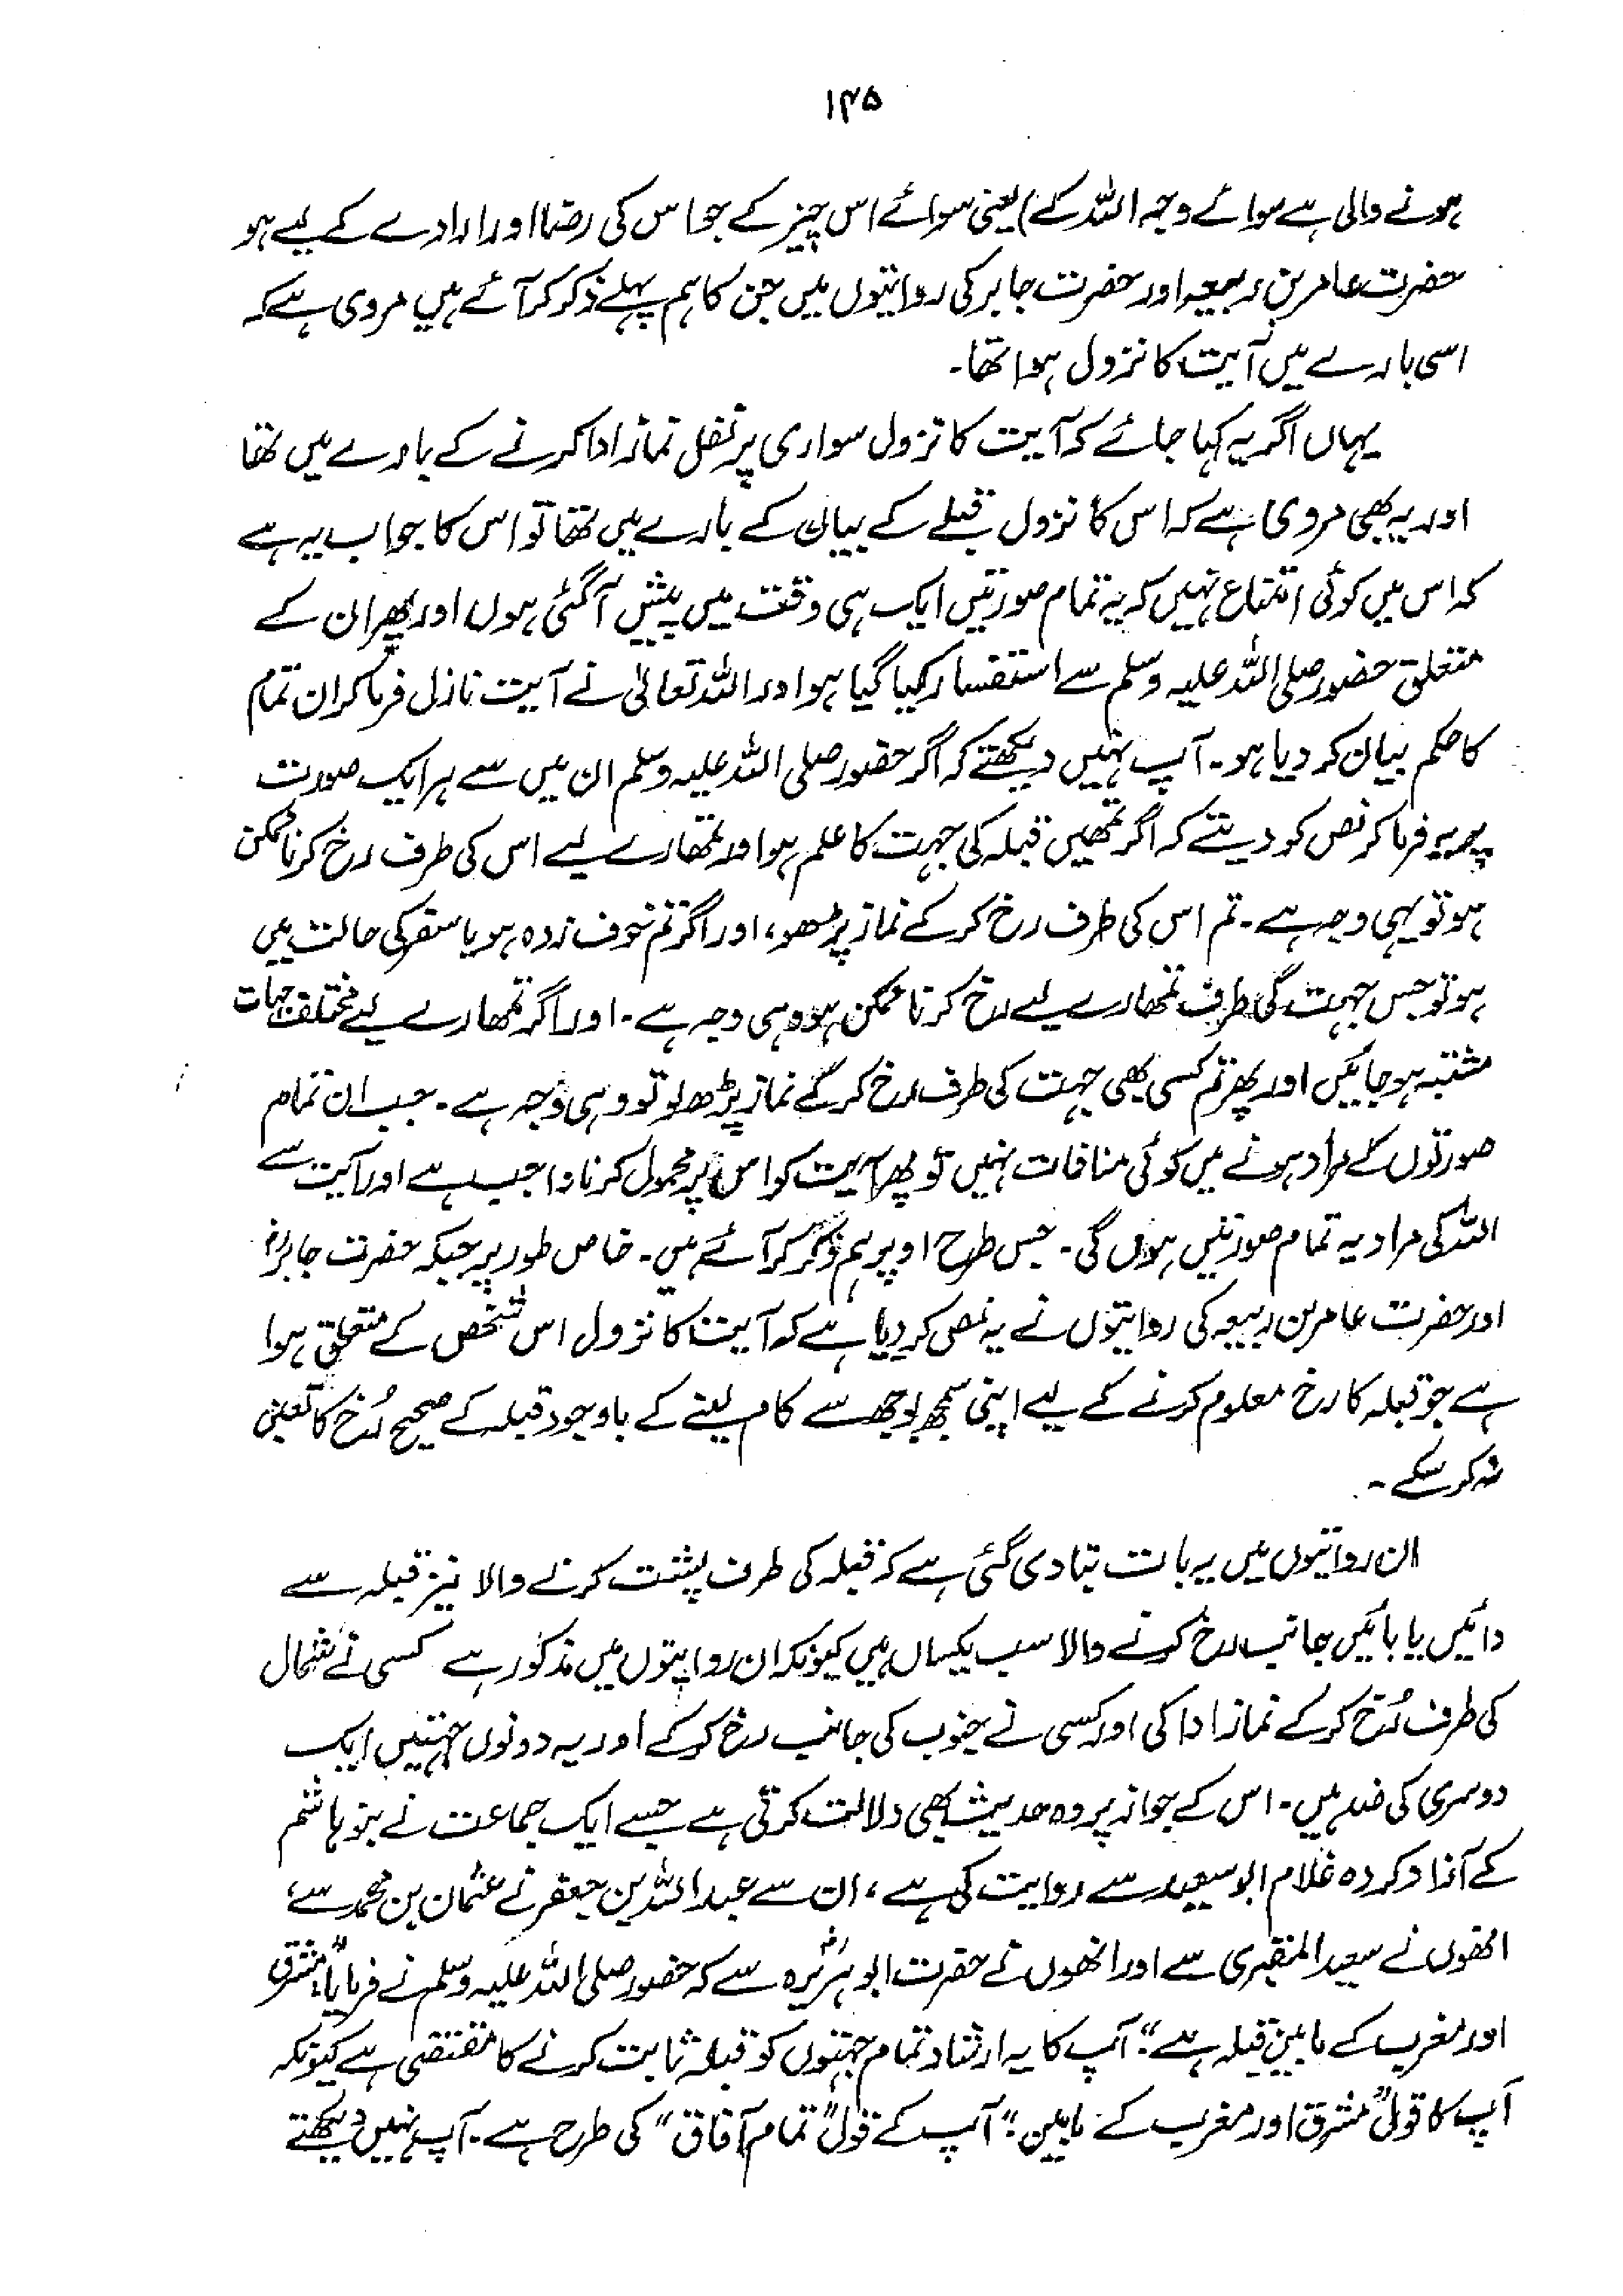 ۱۴۵
ہونے والی ہے سوائے وجہ اللہ کے) یعنی سوائے اس چیز کے جو اس کی رضا اور ارادے کے لیے ہو
حضرت عامر بن ربیعہ اور حضرت جابر کی روایتوں میں جن کا ہم پہلے ذکر کر آئے ہیں مروی ہے کہ
اسی بارے میں آیت کا نزول ہوا تھا۔
یہاں اگر یہ کہا جائے کہ آیت کا نزول سواری پر نفل نماز ادا کرنے کے بارے میں تھا
اور یہ بھی مروی ہے کہ اس کا نزول قبلے کے بیان کے بارے میں تھا تو اس کا جواب یہ ہے
کہ اس میں کوئی امتناع نہیں کہ یہ تمام صورتیں ایک ہی وقت میں پیش آگئی ہوں اور پھر ان کے
متعلق حضور صلی اللہ علیہ وسلم سے استفسار کیا گیا ہو اور اللہ تعالیٰ نے آیت نازل فرما کر ان تمام
کا حکم بیان کر دیا ہو۔ آپ نہیں دیکھتے کہ اگر حضور صلی اللہ علیہ وسلم ان میں سے ہر ایک صورت
پر یہ فرما کر نص کر دیتے کہ اگر تمھیں قبلہ کی جہت کا علم ہو اور تمھارے لیے اس کی طرف رخ کرنا ممکن
ہو تو یہی وجہ ہے۔ تم اس کی طرف رخ کر کے نماز پڑھو، اور اگر تم خوف زدہ ہو یا سفر کی حالت میں
ہو تو جس جہت کی طرف تمھارے لیے رخ کرنا ممکن ہو وہی وجہ ہے۔ اور اگر تمھارے لیے مختلف جہات
مشتبہ ہو جائیں اور پھر تم کسی بھی جہت کی طرف رخ کر کے نماز پڑھ لو تو وہی وجہ ہے۔ جب ان تمام
صورتوں کے مراد ہونے میں کوئی منافات نہیں تو پھر آیت کو اس پر محمول کرنا واجب ہے اور آیت سے
اللہ کی مراد یہ تمام صورتیں ہوں گی۔ جس طرح اوپر ہم ذکر کر آئے ہیں۔ خاص طور پر جبکہ حضرت جابرؓ
اور حضرت عامر بن ربیعہ کی روایتوں نے یہ نص کر دیا ہے کہ آیت کا نزول اس شخص کے متعلق ہوا
ہے جو قبلہ کا رخ معلوم کرنے کے لیے اپنی سمجھ بوجھ سے کام لینے کے باوجود قبلہ کے صحیح رُخ کا تعین
نہ کر سکے۔
ان روایتوں میں یہ بات بتا دی گئی ہے کہ قبلہ کی طرف پشت کرنے والا نیز قبلہ سے
دائیں یا بائیں جانب رخ کرنے والا سب یکساں ہیں کیونکہ ان روایتوں میں مذکور ہے کسی نے شمال
کی طرف رُخ کر کے نماز ادا کی اور کسی نے جنوب کی جانب رخ کر کے اور یہ دونوں جہتیں ایک
دوسری کی ضد ہیں۔ اس کے جواز پر وہ حدیث بھی دلالت کرتی ہے جسے ایک جماعت نے بنو ہاشم
کے آزاد کردہ غلام ابو سعید سے روایت کی ہے، ان سے عبد اللہ بن جعفر نے عثمان بن محمد سے،
انھوں نے سعید المقبری سے اور انھوں نے حضرت ابو ہریرہؓ سے کہ حضور صلی اللہ علیہ وسلم نے فرمایا: "مشرق
اور مغرب کے مابین قبلہ ہے" آپ کا یہ ارشاد تمام جہتوں کو قبلہ ثابت کرنے کا مقتضی ہے کیونکہ
آپ کا قول "مشرق اور مغرب کے مابین" آپ کے قول "تمام آفاق" کی طرح ہے۔ آپ نہیں دیکھتے